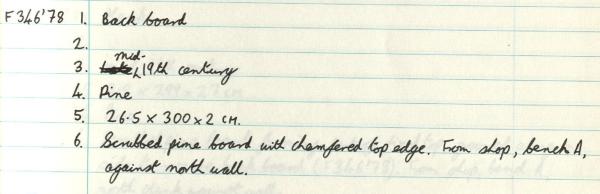 F346'78 1. Back board
2.
3. Late mid-19th century
4. Pine
5. 26.5 x 300 x 2 cm.
6. Scrubbed pine board with chamfered top edge. From shop, bench A,
against north wall.